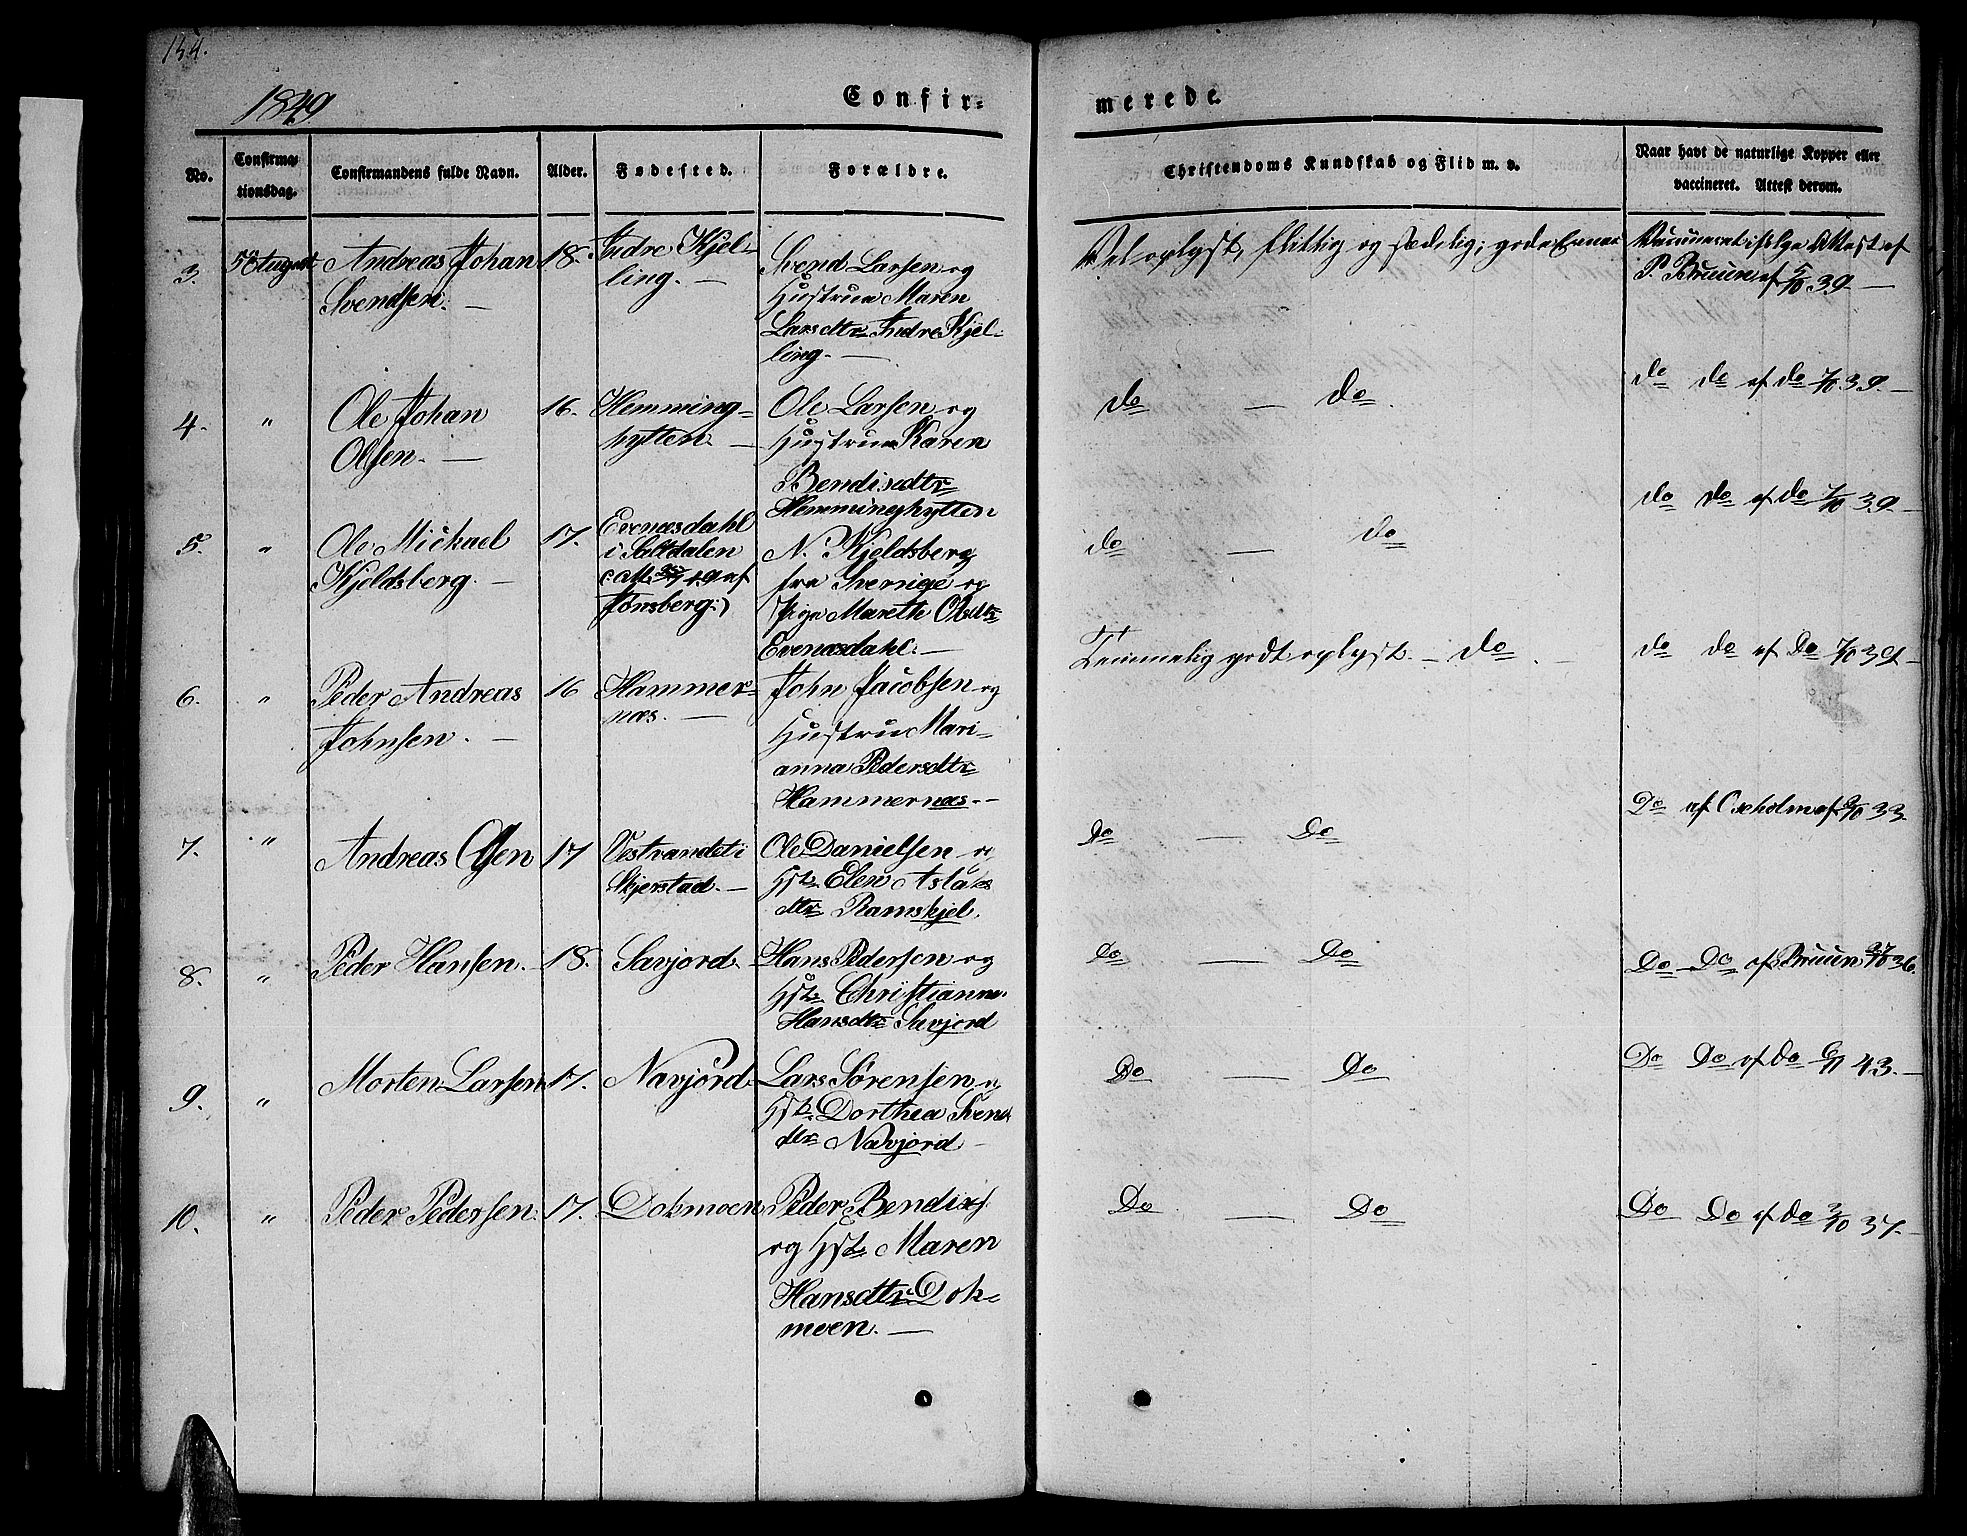 134.
1849
Confir-
merede.
No.
Confirma-
tionsdag.
Confirmandens fulde Navn.
Alder.
Fødested.
Forældre.
Christendoms Kundskab og Flid m. v.
Naar havt de naturlige Kopper eller
vaccineret. Attest derom.
3.
5 August
Andreas Johan
Svendsen.
18.
Indre Kjel-
ling.
Svend Larsen og
Hustrue Maren
Larsdtr Indre Kjel-
ling.
Vel oplyst, flittig og sædelig; gode Evner
Vaccineret ifølge Attest af
P. Bruun af 5/10 39
4.
"
Ole Johan
Olsen.
16.
Hemming-
hytten
Ole Larsen og
Hustrue Karen
Bendixdtr
Hemminghytten
do — do.
do do af do 7/10 39.
5.
"
Ole Mickael
Kjeldsberg.
17.
Evenæsdahl
i Saltdalen
49 af
Jonsberg:)
N. Kjeldsberg
fra Sverrige og
Pige Mareth Olsdtr
Evenæsdahl.
do — do
do do af do 7/10 39.
6.
"
Peder Andreas
Johnsen.
16
Hammer-
næs.
John Jacobsen og
Hustrue Mari-
anna Pedersdtr
Hammernæs.
Temmelig godt oplyst. — do.
do do af Do 7/10 39
7.
"
Andreas Olsen
17
Vestrandet i
Skjerstad.
Ole Danielsen og
Hst. Elen Aslaks
dtr Ramskjel.
Do — Do
Do af 33.
8.
"
Peder Hansen.
18.
Savjord.
Hans Pedersen og
Hst. Christianna
Hansdtr Savjord
Do — Do
Do Do af Bruun 27/10 36.
9.
"
Morten Larsen
17.
Navjord
Lars Sørensen og
Hst. Dorthea Svens
dtr Navjord
Do — Do
Do Do af Do 6/11 43.
10.
"
Peder Pedersen.
17.
Dokmoen
Peder Bendixs.
og Hst. Maren
Hansdtr Dok-
moen.
Do — Do
Do Do af Do 3/10 37.